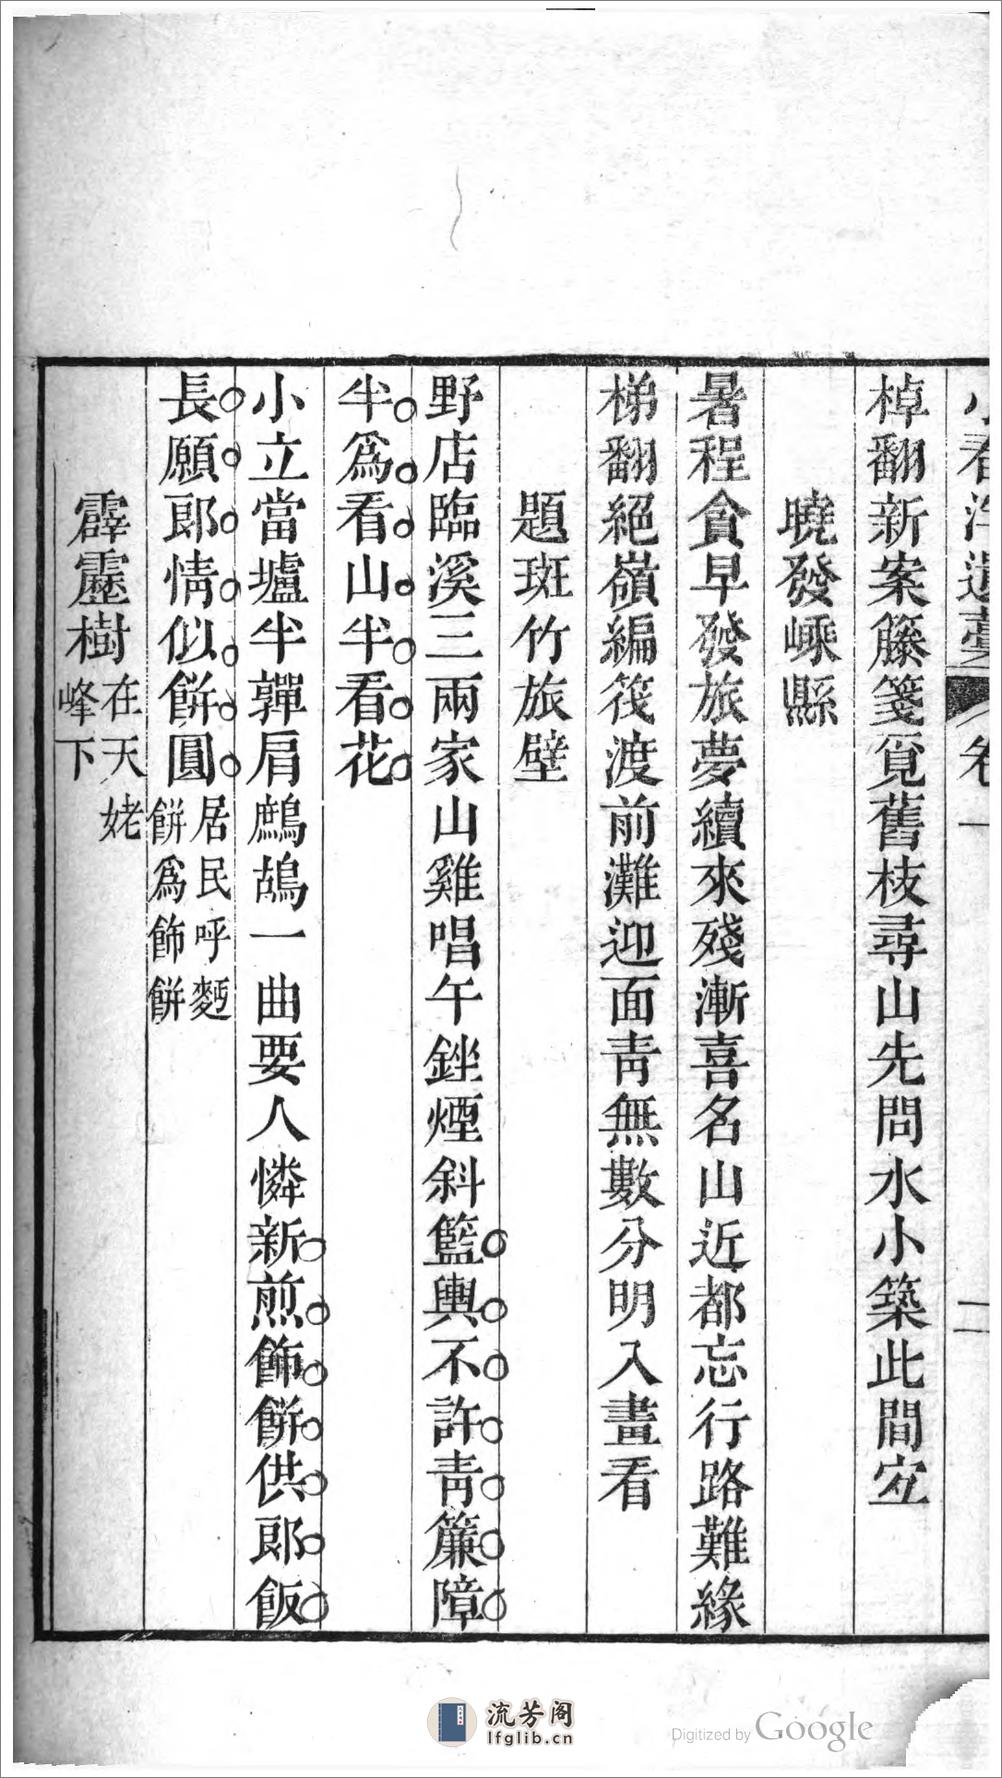 小春浮遺藁 卷一 二
棹翻新案籐箋覓舊枝尋山先問水小築此間宜
曉發嵊縣
暑程貪早發旅夢續來殘漸喜名山近都忘行路難緣
梯翻絕嶺編筏渡前灘迎面靑無數分明入畫看
題斑竹旅壁
野店臨溪三兩家山雞唱午銼煙斜籃輿不許靑簾障
半爲看山半看花
小立當壚半嚲肩鷓鴣一曲要人憐新煎飾餅供郞飯
長願郞情似餅圓居民呼麫餅爲飾餅
霹靂樹在天姥峰下
流芳阁
lfglib.cn
Digitized by Google